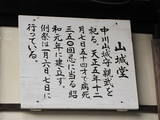 山城堂
中川山城守親武を
祀る。天正五年十二
月七日三十才で病死
三五〇回忌に当る昭
和元年に建立す。
例祭は一月六日七日に
行っている。